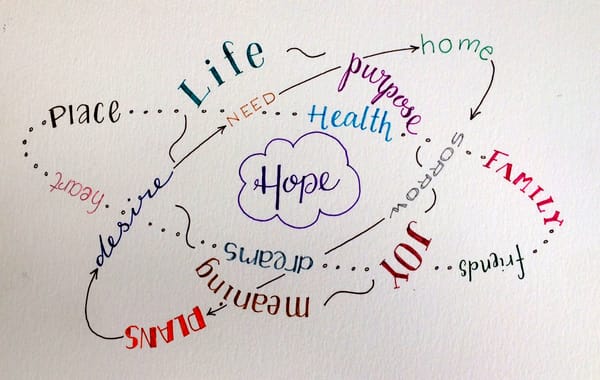 Life
home
purpose
NEED
PLACE
Health
SORROW
FAMILY
heart
desire
Hope
JOY
friends
dreams
meaning
PLANS